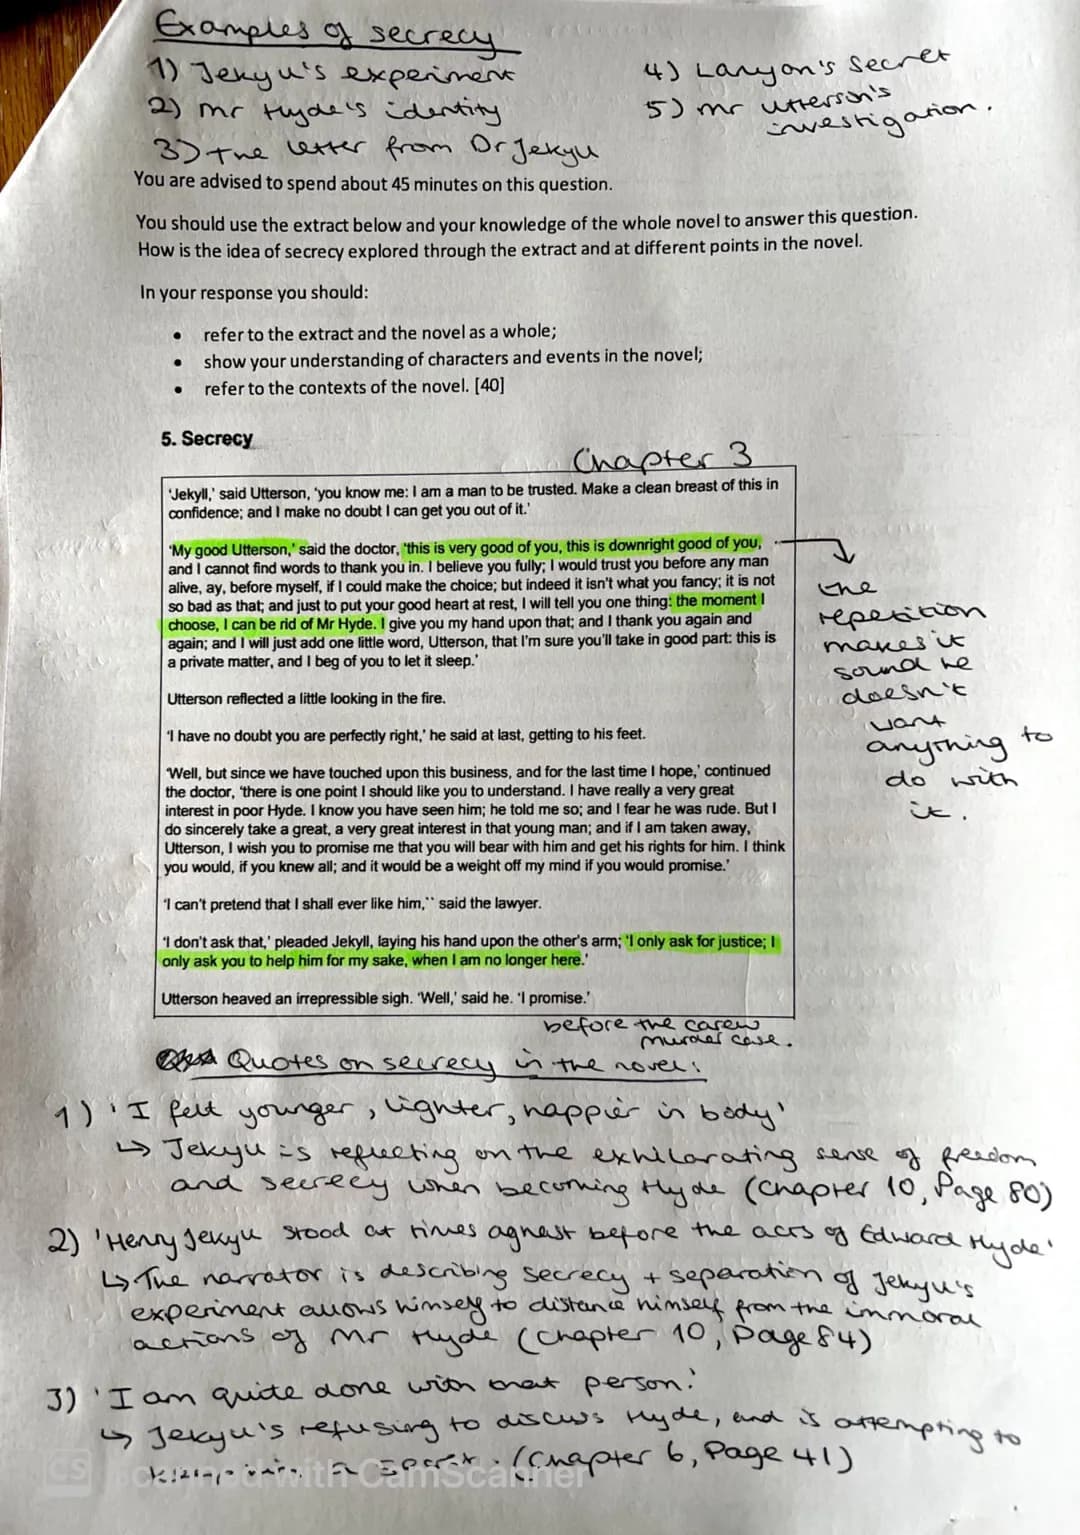 Examples of secrecy
1) Jekyll's experiment
2) Mr Hyde's identity
3) The letter from Dr Jekyll
4) Lanyon's secret
5) Mr Utterson's
investigation.
You are advised to spend about 45 minutes on this question.
You should use the extract below and your knowledge of the whole novel to answer this question.
How is the idea of secrecy explored through the extract and at different points in the novel.
In your response you should:
• refer to the extract and the novel as a whole;
• show your understanding of characters and events in the novel;
• refer to the contexts of the novel. [40]
5. Secrecy
Chapter 3
'Jekyll,' said Utterson, 'you know me: I am a man to be trusted. Make a clean breast of this in
confidence; and I make no doubt I can get you out of it.'
'My good Utterson,' said the doctor, 'this is very good of you, this is downright good of you,
and I cannot find words to thank you in. I believe you fully; I would trust you before any man
alive, ay, before myself, if I could make the choice; but indeed it isn't what you fancy; it is not
so bad as that; and just to put your good heart at rest, I will tell you one thing: the moment I
choose, I can be rid of Mr Hyde. I give you my hand upon that; and I thank you again and
again; and I will just add one little word, Utterson, that I'm sure you'll take in good part: this is
a private matter, and I beg of you to let it sleep.'
Utterson reflected a little looking in the fire.
'I have no doubt you are perfectly right,' he said at last, getting to his feet.
'Well, but since we have touched upon this business, and for the last time I hope,' continued
the doctor, 'there is one point I should like you to understand. I have really a very great
interest in poor Hyde. I know you have seen him; he told me so; and I fear he was rude. But I
do sincerely take a great, a very great interest in that young man; and if I am taken away,
Utterson, I wish you to promise me that you will bear with him and get his rights for him. I think
you would, if you knew all; and it would be a weight off my mind if you would promise.'
'I can't pretend that I shall ever like him,'' said the lawyer.
'I don't ask that,' pleaded Jekyll, laying his hand upon the other's arm; 'I only ask for justice; I
only ask you to help him for my sake, when I am no longer here.'
Utterson heaved an irrepressible sigh. 'Well,' said he. 'I promise.'
the
repetition
makes it
sound he
doesn't
want
anything to
do with
it.
before the carew
murder case.
Quotes on secrecy in the novel:
1) 'I felt younger, lighter, happier in body'
↳ Jekyll is reflecting on the exhilarating sense of freedom
and secrecy when becoming Hyde (Chapter 10, Page 80)
2) 'Henry Jekyll stood at times aghast before the acts of Edward Hyde'
↳ The narrator is describing secrecy + separation of Jekyll's
experiment allows himself to distance himself from the immoral
actions of Mr Hyde (Chapter 10, Page 84)
3) 'I am quite done with that person.'
↳ Jekyll's refusing to discuss Hyde, and is attempting to
a secret. (Chapter 6, Page 41)
CS Scanned with CamScanner